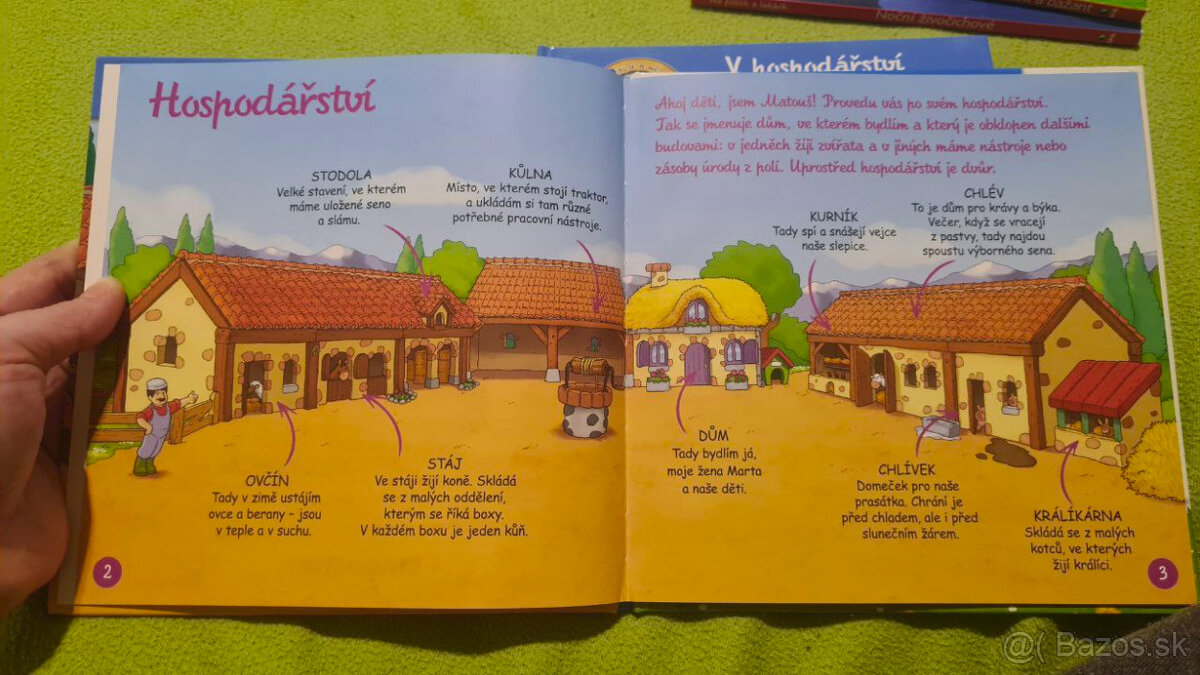 Noční živočichové
bažant
V hospodářství
Hospodářství
STODOLA
Velké stavení, ve kterém
máme uložené seno
a slámu.
KŮLNA
Místo, ve kterém stojí traktor,
a ukládám si tam různé
potřebné pracovní nástroje.
OVČÍN
Tady v zimě ustájím
ovce a berany – jsou
v teple a v suchu.
STÁJ
Ve stáji žijí koně. Skládá
se z malých oddělení,
kterým se říká boxy.
V každém boxu je jeden kůň.
2
Ahoj děti, jsem Matouš! Provedu vás po svém hospodářství.
Tak se jmenuje dům, ve kterém bydlím a který je obklopen dalšími
budovami: v jedněch žijí zvířata a v jiných máme nástroje nebo
zásoby úrody z polí. Uprostřed hospodářství je dvůr.
KURNÍK
Tady spí a snášejí vejce
naše slepice.
CHLÉV
To je dům pro krávy a býka.
Večer, když se vracejí
z pastvy, tady najdou
spoustu výborného sena.
DŮM
Tady bydlím já,
moje žena Marta
a naše děti.
CHLÍVEK
Domeček pro naše
prasátka. Chrání je
před chladem, ale i před
slunečním žárem.
KRÁLÍKÁRNA
Skládá se z malých
kotců, ve kterých
žijí králíci.
3
@( Bazos.sk